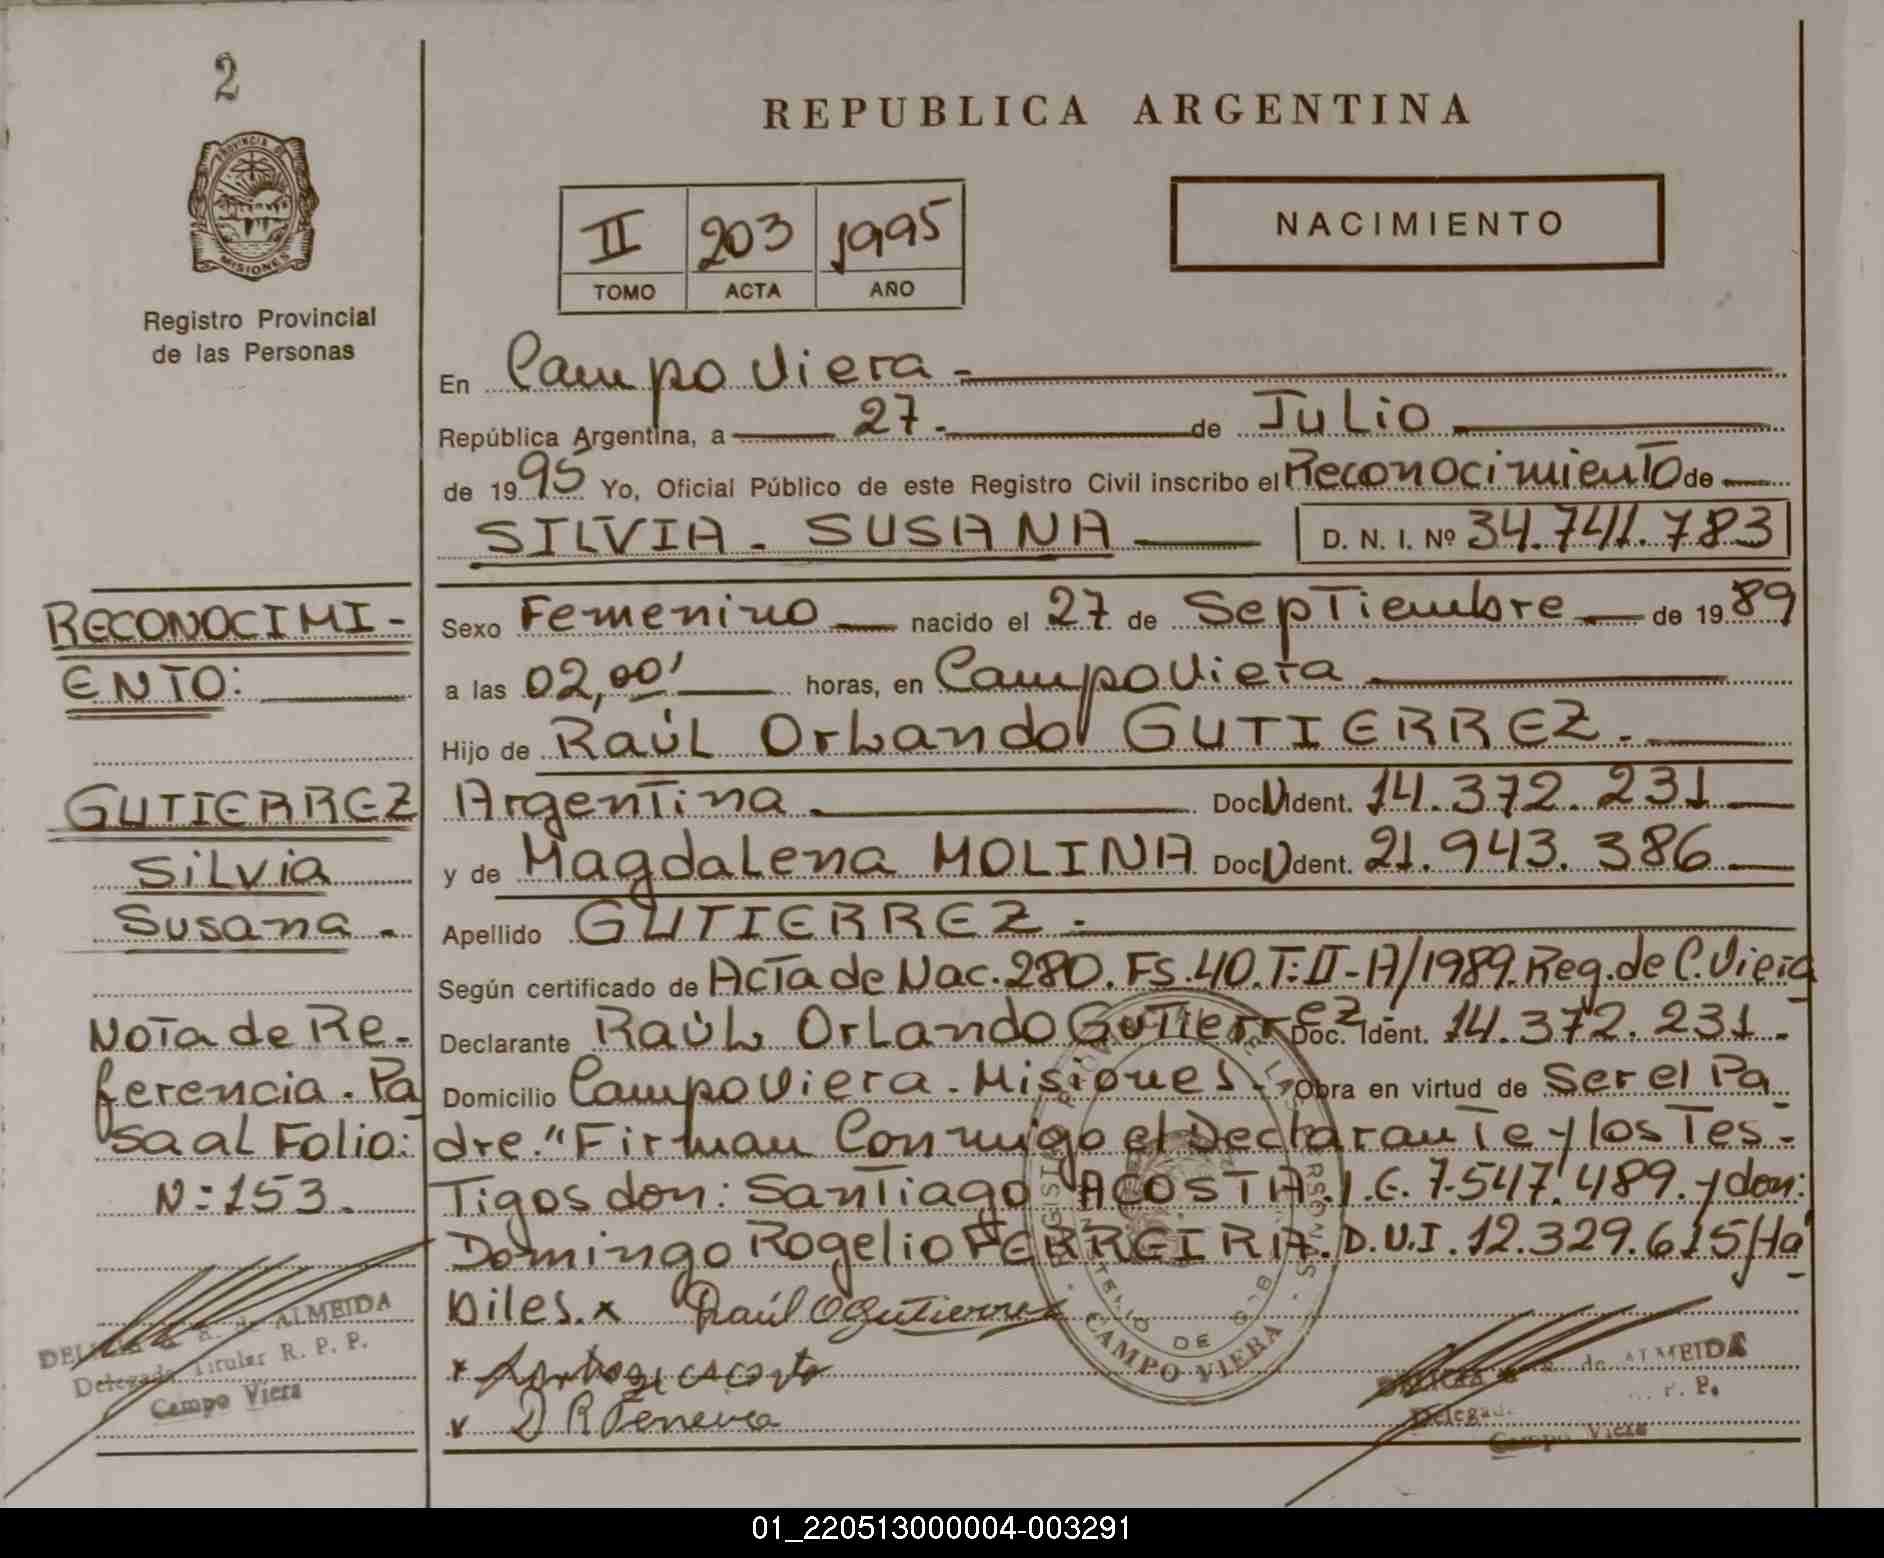 2
PROVINCIA DE
MISIONES
Registro Provincial
de las Personas
REPUBLICA ARGENTINA
II 203 1995
TOMO ACTA AÑO
NACIMIENTO
En Campo Viera -
República Argentina, a 27. de Julio
de 1995 Yo, Oficial Público de este Registro Civil inscribo el Reconocimiento de
SILVIA - SUSANA D. N. I. Nº 34.741.783
Sexo Femenino nacido el 27 de Septiembre de 1989
a las 02,00' horas, en Campo Viera
Hijo de Raúl Orlando GUTIERREZ.
Argentina Doc. Ident. 14.372.231
y de Magdalena MOLINA Doc. Ident. 21.943.386
Apellido GUTIERREZ -
Según certificado de Acta de Nac. 280. Fs. 40. T: II - A/1989. Reg. de C. Viera
Declarante Raúl Orlando Gutierrez Doc. Ident. 14.372.231.-
Domicilio Campo Viera - Misiones - Obra en virtud de Ser el Pa
dre. "Firman Conmigo el Declarante y los Tes-
Tigos don: Santiago ACOSTA. I.E. 7.547.489. y don:
Domingo Rogelio FERREIRA. D.N.I. 12.329.615/Há
biles. x Raúl O Gutierrez
x
x D R Ferreira
RECONOCIMI-
ENTO:
GUTIERREZ
Silvia
Susana -
Nota de Re-
ferencia. Pa
sa al Folio:
N: 153.
DE ALMEIDA
Delegada Titular R. P. P.
Campo Viera
CAMPO VIERA
de ALMEIDA
Delegada
Campo Viera
01_220513000004-003291